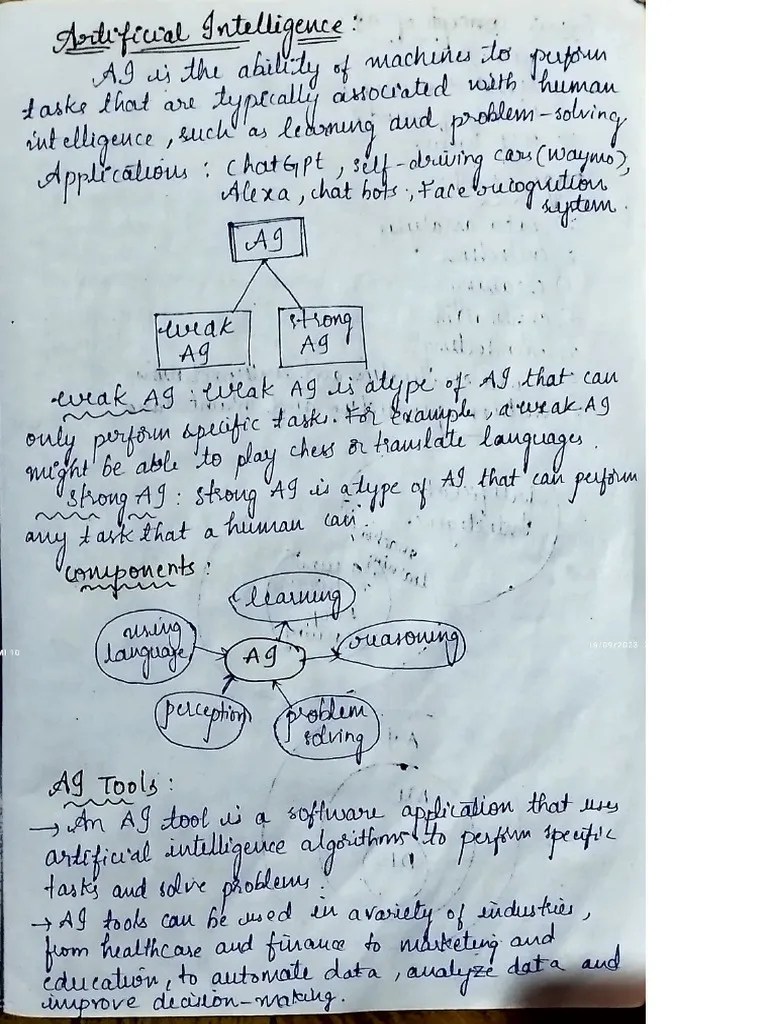 Artificial Intelligence :
AI is the ability of machines to perform
tasks that are typically associated with human
intelligence, such as learning and problem-solving
Applications : ChatGpt, self-driving cars (waymo),
Alexa, chat bots, Face recognition
system.
AI
weak
AI
strong
AI
weak AI : weak AI is a type of AI that can
only perform specific tasks. For example, a weak AI
might be able to play chess or translate languages.
strong AI : strong AI is a type of AI that can perform
any task that a human can.
components :
learning
using
language
AI
reasoning
perception
problem
solving
AI Tools :
→ An AI tool is a software application that uses
artificial intelligence algorithms to perform specific
tasks and solve problems.
→ AI tools can be used in a variety of industries,
from healthcare and finance to marketing and
education, to automate data, analyze data and
improve decision-making.